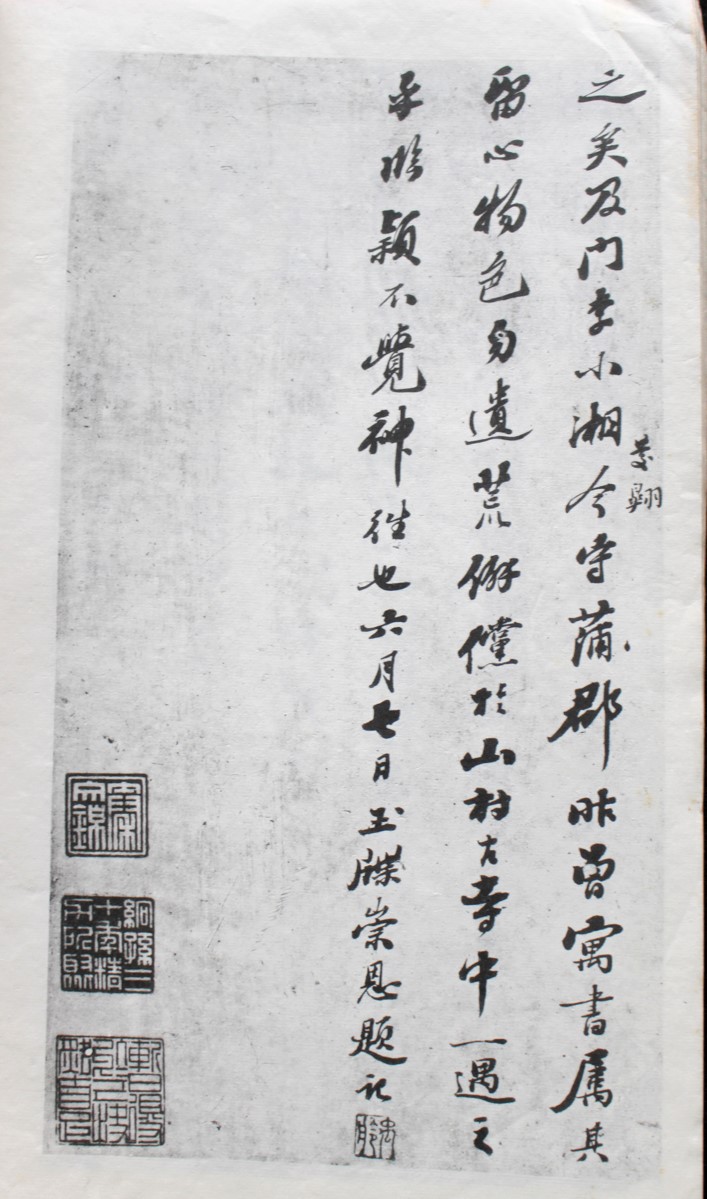 之矣及門李小湘今守蒲郡昨曾寓書属其
慶翱
留心物色勿遺荒僻儻於山村古寺中一遇之
乎臨穎不覺神往也六月七日玉牒崇恩題記